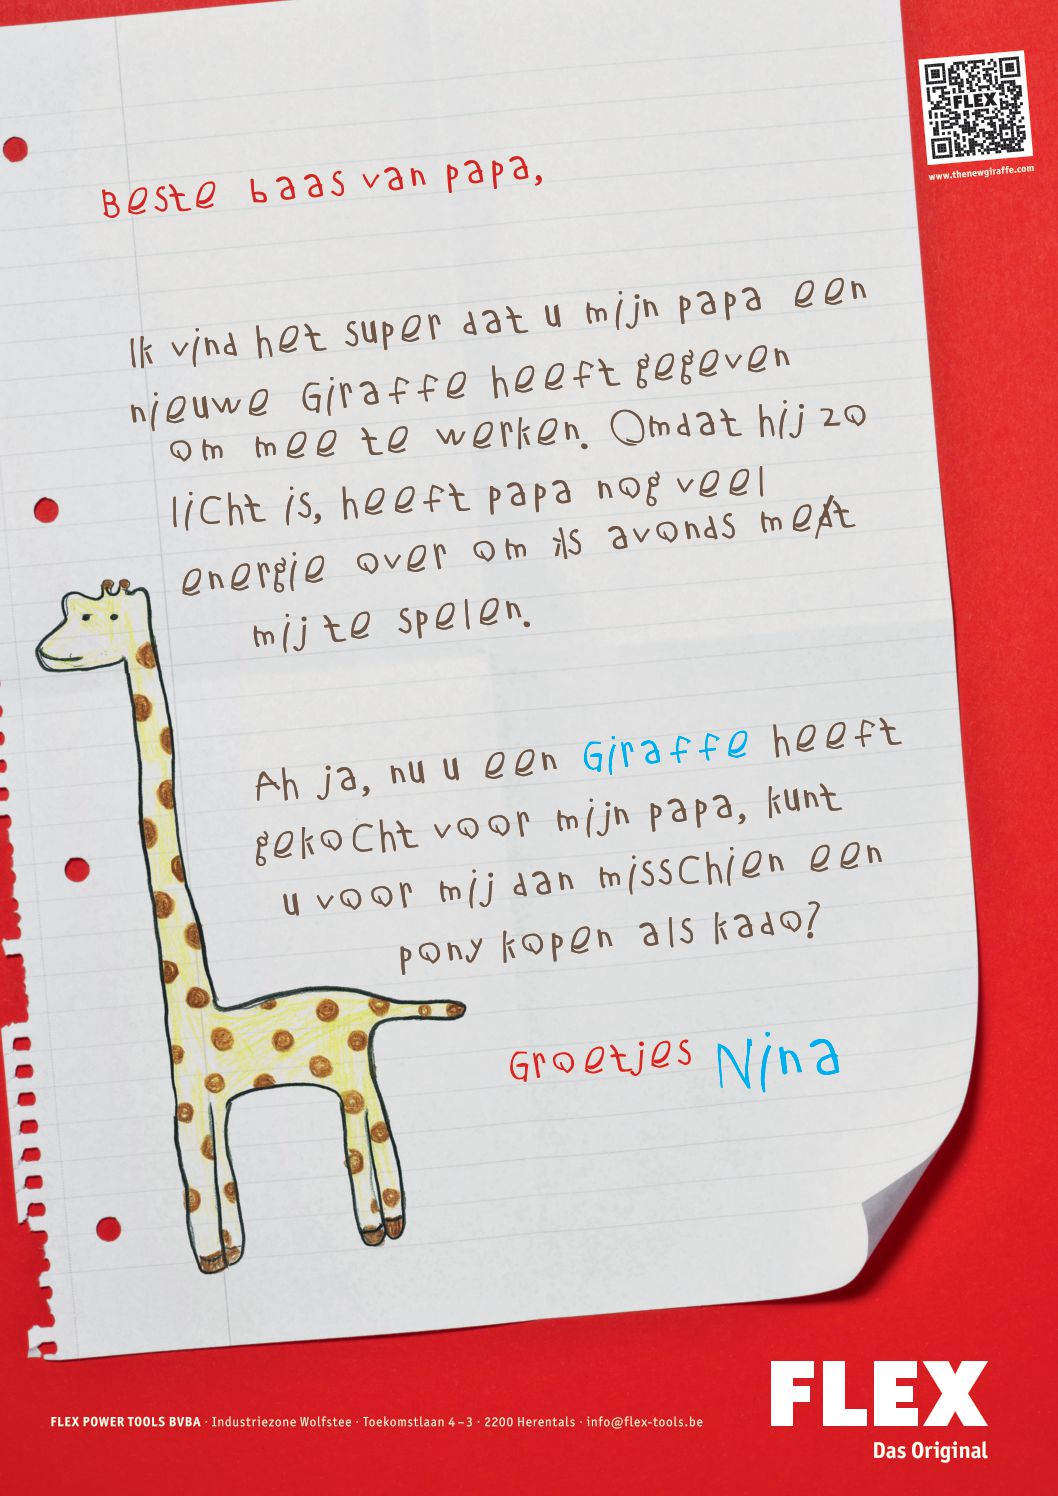 FLEX
www.thenewgiraffe.com
Beste baas van papa,
Ik vind het super dat u mijn papa een
nieuwe Giraffe heeft gegeven
om mee te werken. Omdat hij zo
licht is, heeft papa nog veel
energie over om 's avonds met
mij te spelen.
Ah ja, nu u een Giraffe heeft
gekocht voor mijn papa, kunt
u voor mij dan misschien een
pony kopen als kado?
Groetjes Nina
FLEX
Das Original
FLEX POWER TOOLS BVBA · Industriezone Wolfstee · Toekomstlaan 4–3 · 2200 Herentals · info@flex-tools.be